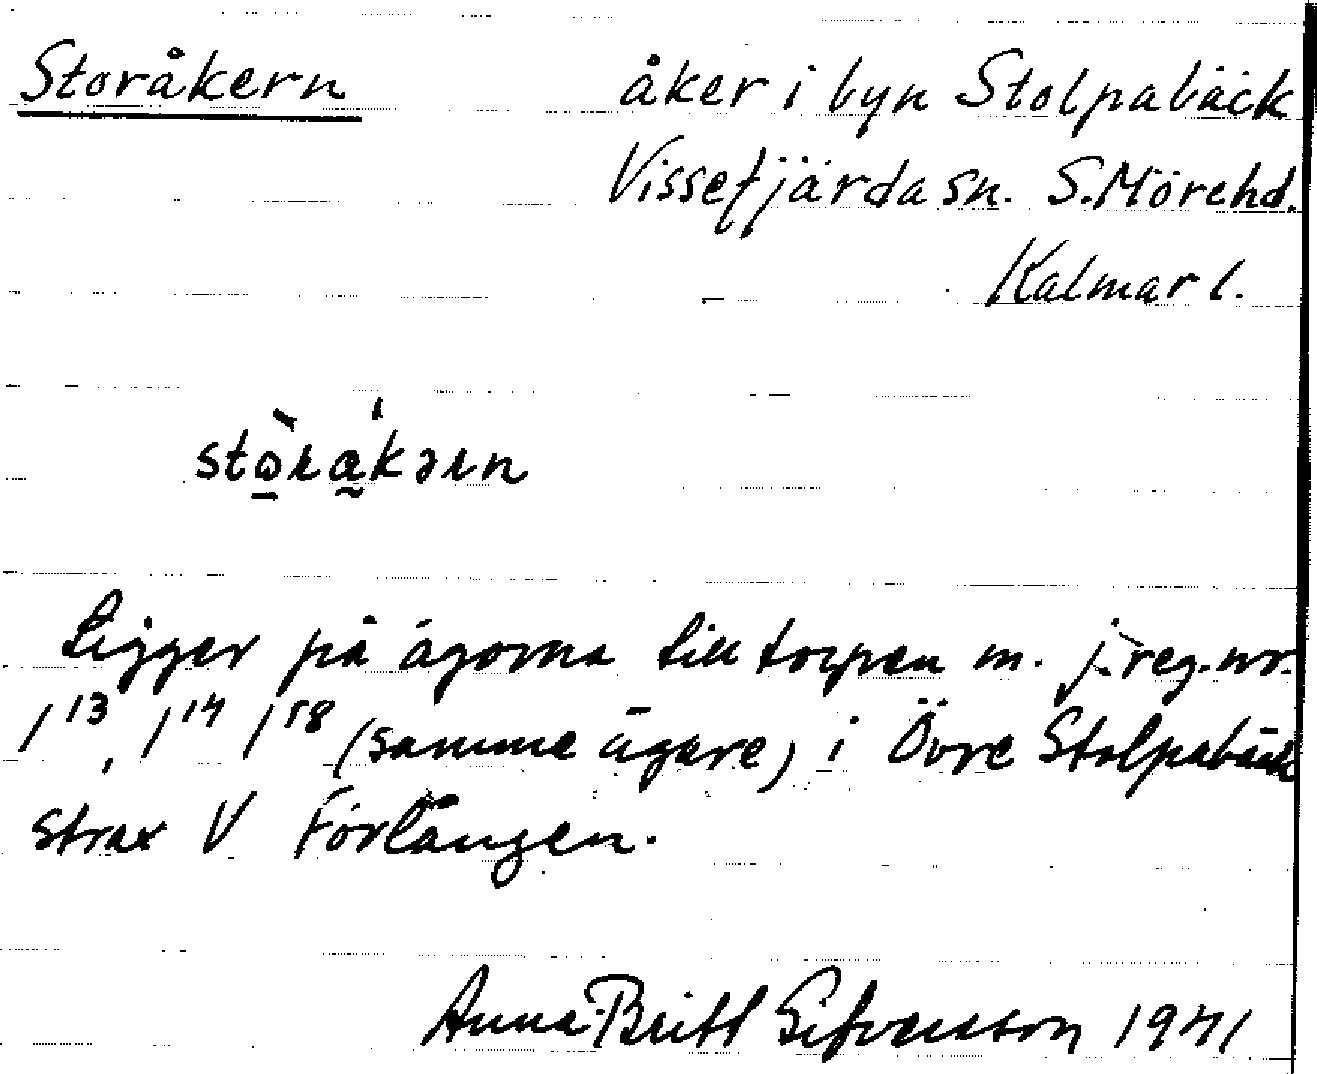 Storåkern åker i byn Stolpabäck
Vissefjärda sn. S. Möre hd.
Kalmar l.
Ligger på ägorna till torpen m. j.reg.nr.
1¹³, 1¹⁴ 1⁵⁸ (samme ägare) i Övre Stolpabäck
strax V Förlången.
Anna-Britt 1941